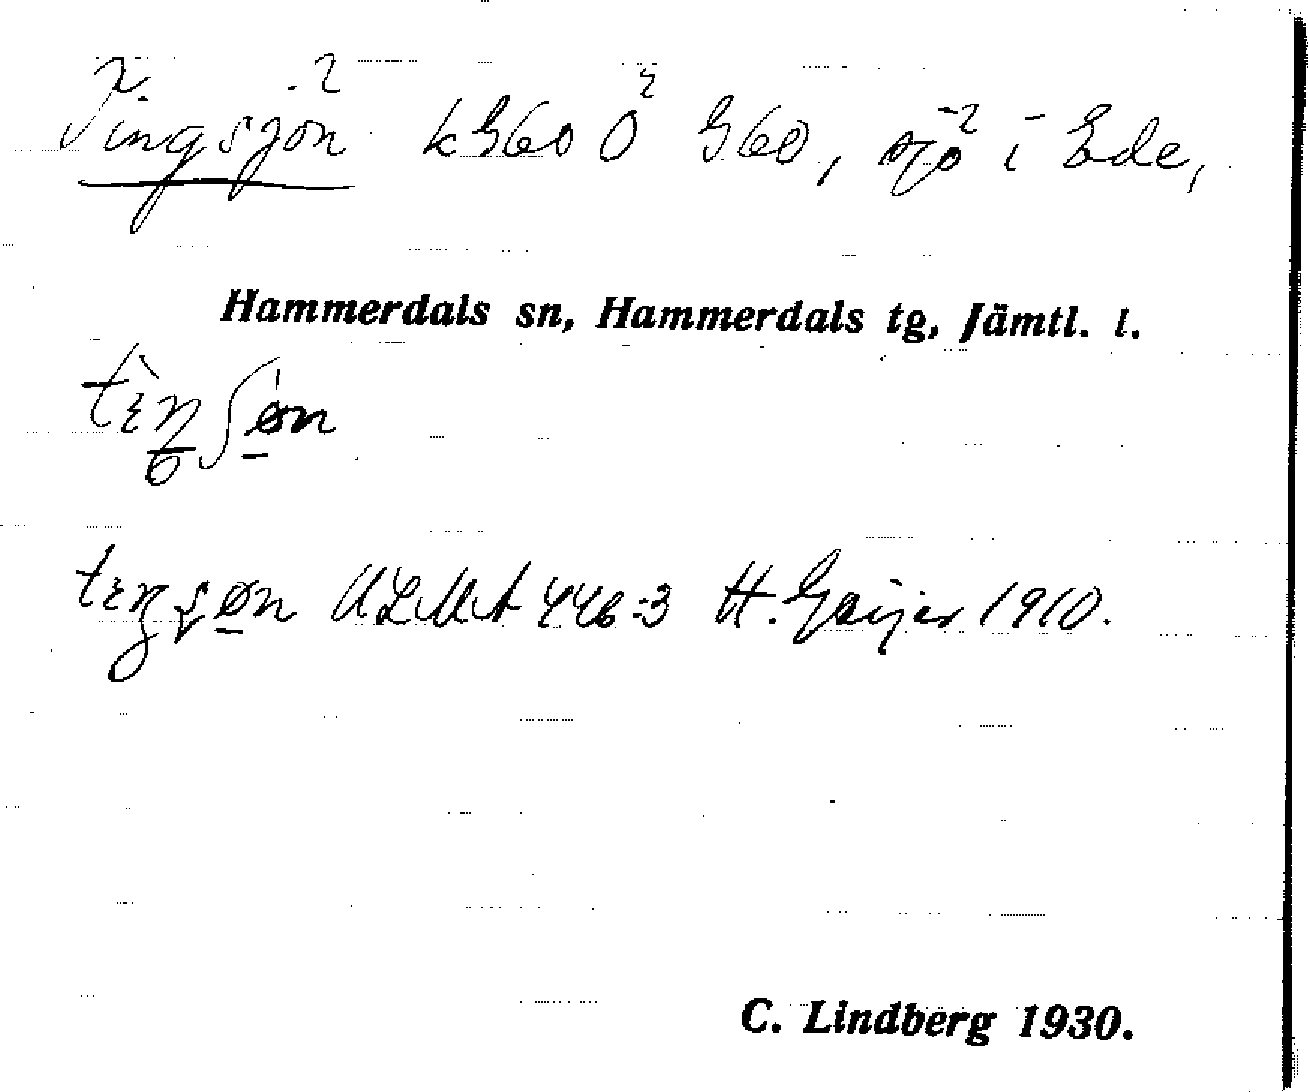 Tingsjön k G60 Ö G60, sjö i Ede,
Hammerdals sn, Hammerdals tg, Jämtl. l.
ULMA 446:3 H. Geijer 1910.
C. Lindberg 1930.